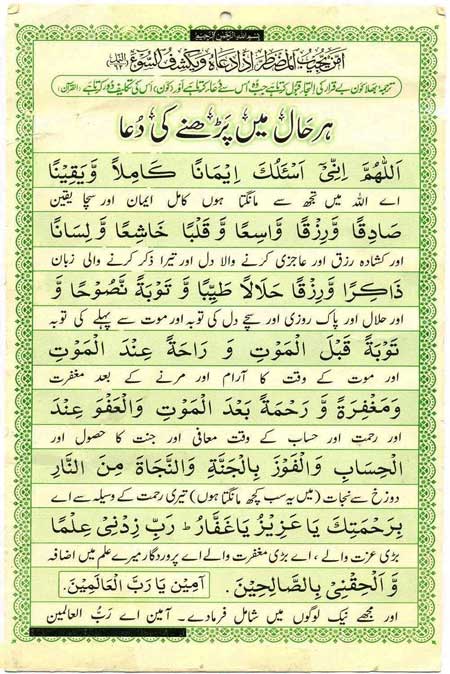 بسم الله الرحمن الرحیم
امن یجیب المضطر اذا دعاه ویکشف السوء (النمل)
ترجمہ: بھلا کون بے قرار کی التجا قبول کرتا ہے جب وہ اُس سے دعا کرتا ہے اور (کون) اُس کی تکلیف دور کرتا ہے (القرآن)
ہر حال میں پڑھنے کی دُعا
اَللّٰهُمَّ اِنِّیْ اَسْئَلُكَ اِیْمَانًا كَامِلاً وَّیَقِیْنًا
اے اللہ میں تجھ سے مانگتا ہوں کامل ایمان اور سچا یقین
صَادِقًا وَّرِزْقًا وَّاسِعًا وَّ قَلْبًا خَاشِعًا وَّ لِسَانًا
اور کشادہ رزق اور عاجزی کرنے والا دل اور تیرا ذکر کرنے والی زبان
ذَاكِرًا وَّرِزْقًا حَلَالًا طَیِّبًا وَّ تَوْبَةً نَّصُوْحًا وَّ
اور حلال اور پاک روزی اور سچے دل کی توبہ اور موت سے پہلے کی توبہ
تَوْبَةً قَبْلَ الْمَوْتِ وَ رَاحَةً عِنْدَ الْمَوْتِ
اور موت کے وقت کا آرام اور مرنے کے بعد مغفرت
وَمَغْفِرَةً وَّ رَحْمَةً بَعْدَ الْمَوْتِ وَالْعَفْوَ عِنْدَ
اور رحمت اور حساب کے وقت معافی اور جنت کا حصول اور
الْحِسَابِ وَالْفَوْزَ بِالْجَنَّةِ وَالنَّجَاةَ مِنَ النَّارِ
دوزخ سے نجات (میں یہ سب کچھ مانگتا ہوں) تیری رحمت کے وسیلہ سے اے
بِرَحْمَتِكَ یَا عَزِیْزُ یَا غَفَّارُ ط رَبِّ زِدْنِیْ عِلْمًا
بڑی عزت والے ، اے بڑی مغفرت والے اے پروردگار میرے علم میں اضافہ
وَّ اَلْحِقْنِیْ بِالصَّالِحِیْنَ . آمِیْن یَا رَبَّ الْعَالَمِیْنَ.
اور مجھے نیک لوگوں میں شامل فرمادے۔ آمین اے رَبُّ العالمین